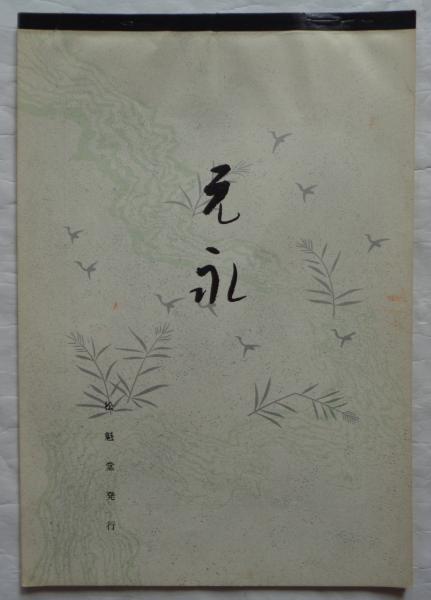 元永
松魁堂発行